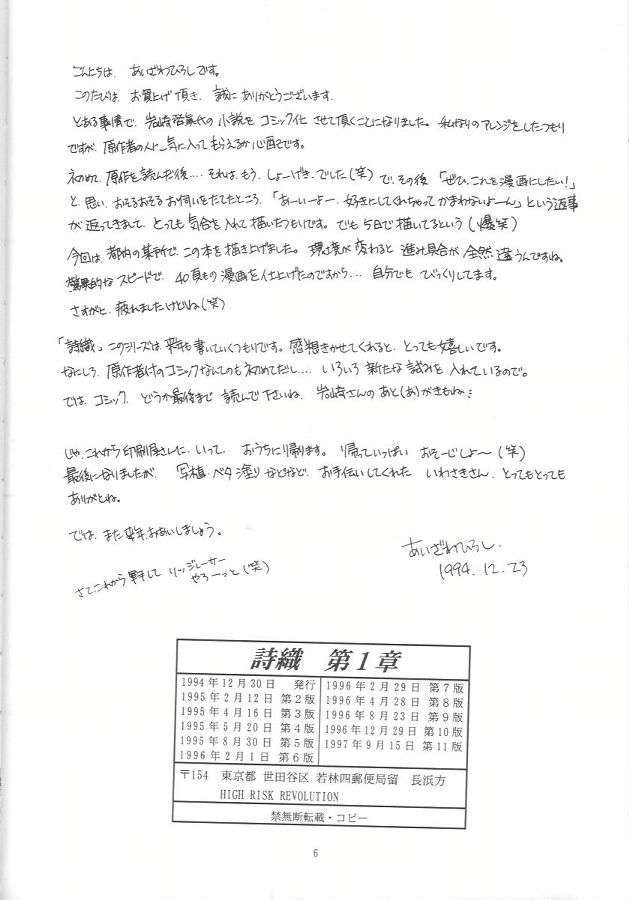 こんにちは、あいざわひろしです。
このたびは、お買上げ頂き、誠にありがとうございます。
とある事情で、岩崎啓眞代の小説をコミック化させて頂くことになりました。私なりのアレンジをしたつもり
ですが、原作者の人に気に入ってもらえるか心配です。
初めて、原作を読んだ後…それは、もう、しょーげき、でした(笑)で、その後「ぜひ、これを漫画にしたい!」
と、思い、おそるおそるお伺いをたてたところ、「あーいーよー、好きにしてくれちゃってかまわないよーん」という返事
が返ってきまして、とっても気合を入れて描いたつもりです。でも5日で描いてるという(爆笑)
今回は、都内の某所で、この本を描き上げました。環境が変わると進み具合が全然違うんですね。
驚異的なスピードで、40頁もの漫画を仕上げたのですから…自分でもびっくりしてます。
さすがに、疲れましたけどね(笑)
「詩織」このシリーズは、来年も書いていくつもりです。感想きかせてくれると、とっても嬉しいです。
なにしろ、原作者付のコミックなんてのも初めてだし…いろいろ新たな試みを入れているので。
では、コミック、どうか最後まで読んで下さいね、岩崎さんのあと(あ)がきもね
じゃ、これから印刷屋さんに、いって、おうちに帰ります。帰っていっぱいおそーじしよ〜(笑)
最後になりましたが、写植・ベタ塗りなどなど、お手伝いしてくれた いわさきさん、とってもとっても
ありがとね。
では、また来年、おあいしましょう。
さてこれから
リッジレーサー
やろーっと(笑)
あいざわひろし
1994.12.23
詩織 第1章
1994年12月30日 発行
1995年2月12日 第2版
1995年4月16日 第3版
1995年5月20日 第4版
1995年8月30日 第5版
1996年2月1日 第6版
1996年2月29日 第7版
1996年4月28日 第8版
1996年8月23日 第9版
1996年12月29日 第10版
1997年9月15日 第11版
〒154 東京都 世田谷区 若林四郵便局留 長浜方
HIGH RISK REVOLUTION
禁無断転載・コピー
6